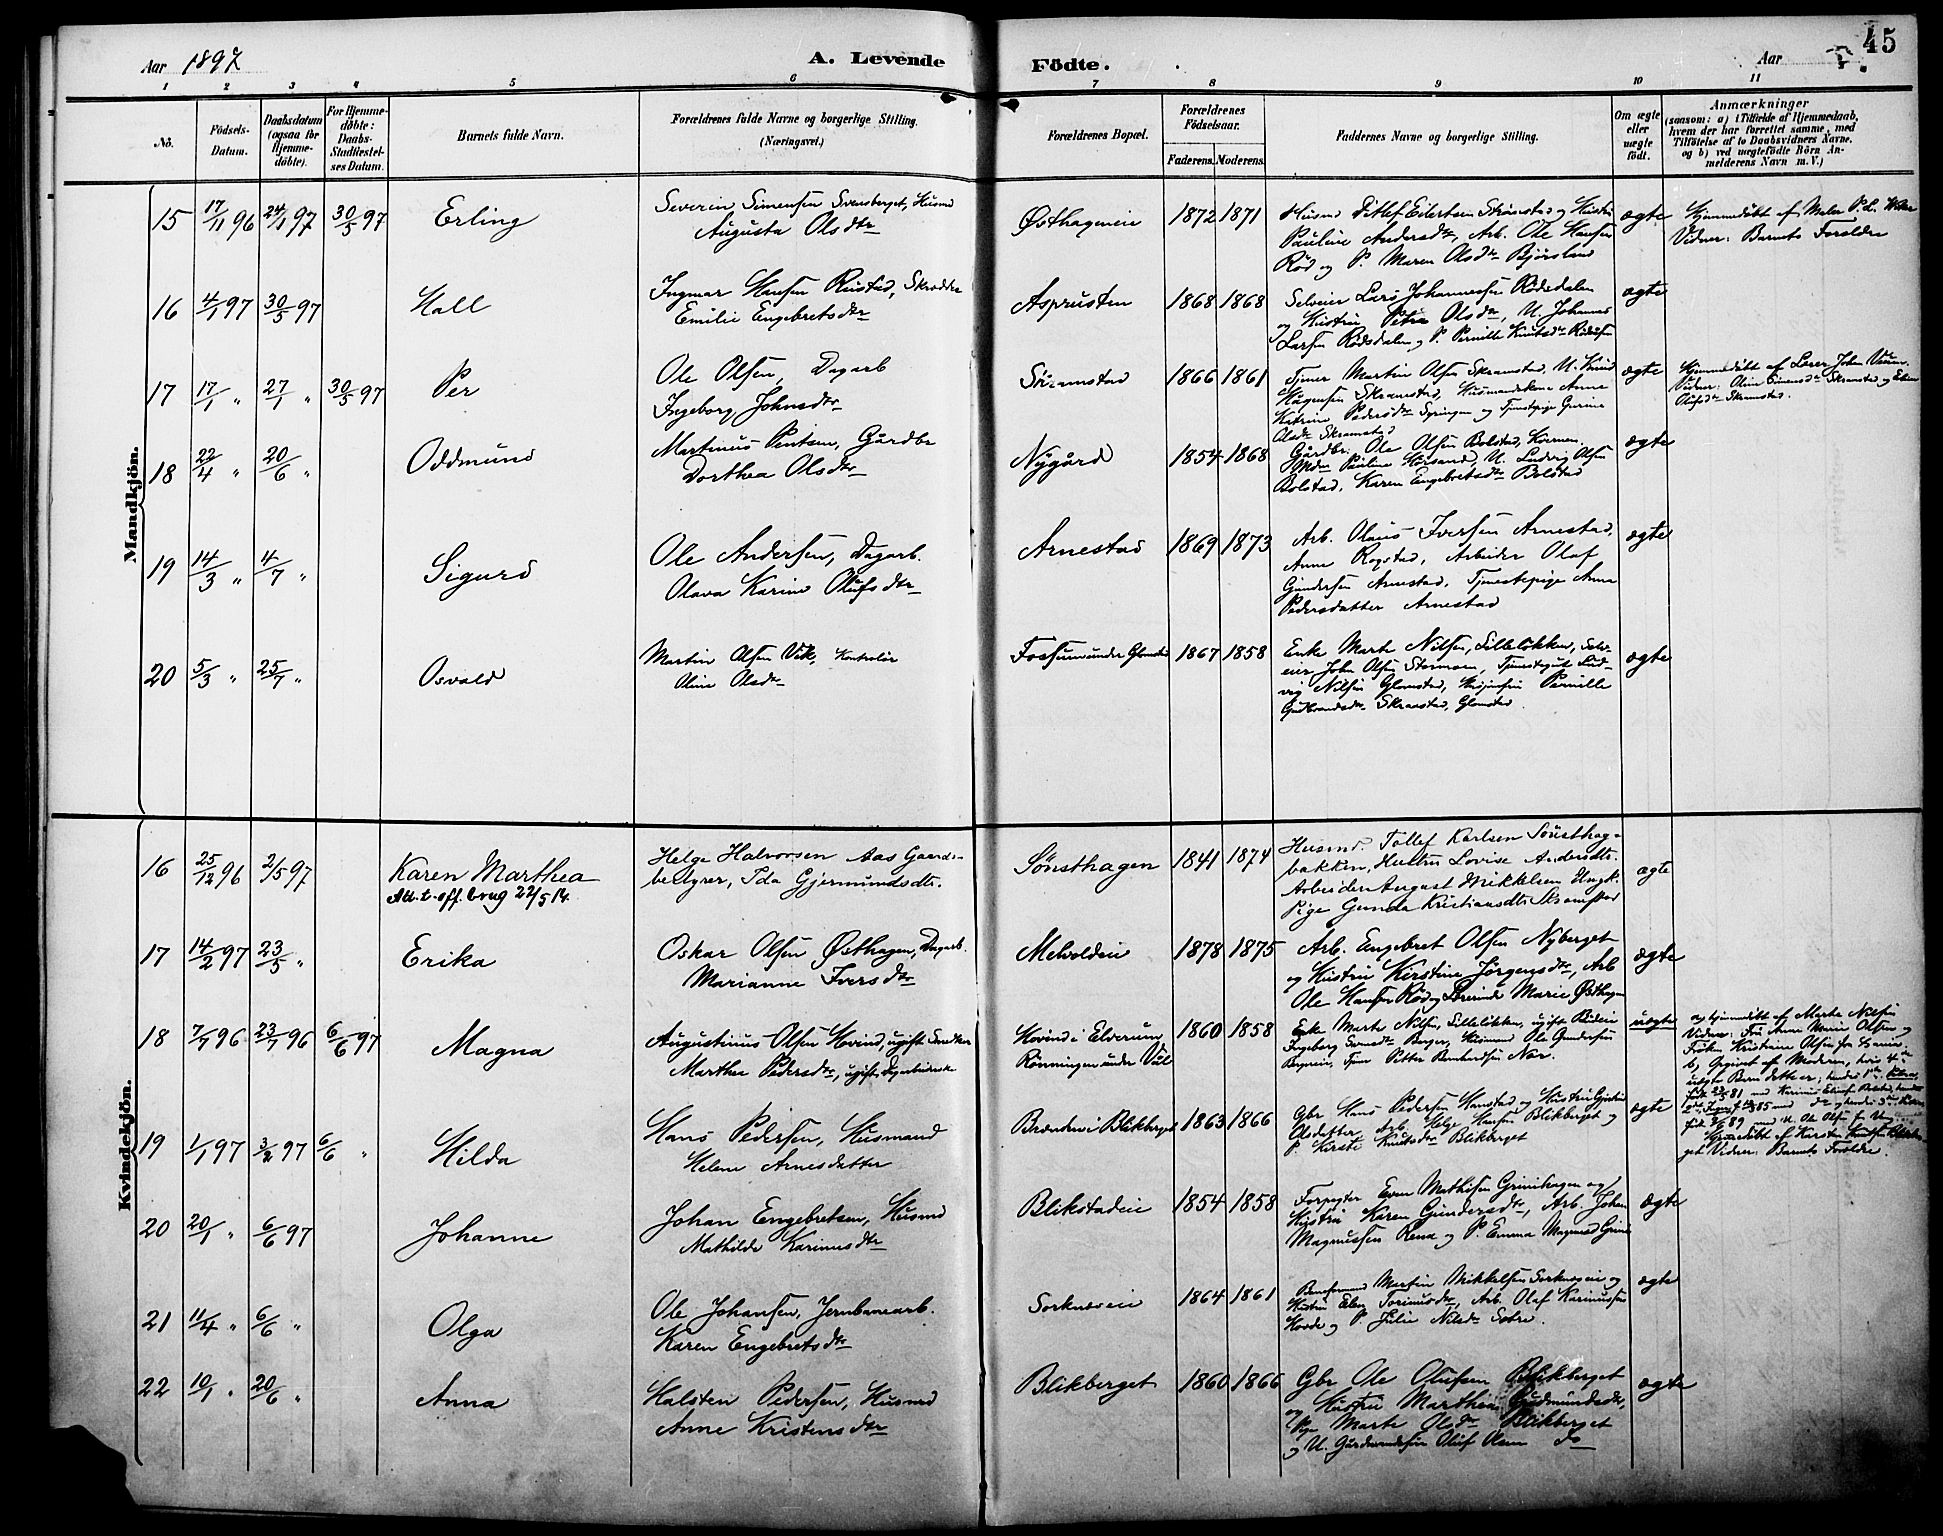 Aar 1897
A. Levende
Födte.
Aar
45
1 2 3 4 5 6 7 8 9 10 11
No.
Födsels-
Datum.
Daabsdatum
(ogsaa for
Hjemme-
döbte).
For Hjemme-
döbte:
Daabs-
Stadfæstel-
ses Datum.
Barnets fulde Navn.
Forældrenes fulde Navne og borgerlige Stilling.
(Næringsvei.)
Forældrenes Bopæl.
Forældrenes
Födselsaar.
Faderens. Moderens.
Faddernes Navne og borgerlige Stilling.
Om ægte
eller
uægte
födt.
Anmærkninger
(saasom: a) i Tilfælde af Hjemmedaab,
hvem der har forrettet samme, med
Tilföielse af to Daabsvidners Navne,
og b) ved uægtefödte Börn An-
melderens Navn m. V.)
Mandkjön.
15 17/11 96 24/1 97 30/5 97 Erling
Severin Simensen Svensberget, Husmd
Augusta Olsdtr
Østhageneie 1872 1871
Husmd Ditlef Eilertsen Strømstad og Hustru
Pauline Andersdtr, Arb. Ole Hansen
Rød og P. Maren Olsdtr Bjørsland
ægte
Hjemmedøbt af Maler P. L.
Vidner: Barnets Forældre
16 4/1 97 30/5 97 Hall
Ingmar Hansen Rustad, Skrædder
Emilie Engebretsdtr
Asprusten 1868 1868
Selveier Lars Johannessen Rödsdalen
og Hustru Petra Olsdtr, U. Johannes
Larsen Rödsdalen og P. Pernille Knutsdtr
ægte
17 17/1 " 27/1 " 30/5 97 Per
Ole Olsen, Dagarb
Ingeborg Johnsdtr
Skramstad 1866 1861
Tjener Martin Olsen Skramstad, U. Knud
Hagensen Skramstad, Husmandskone Anne
Katrine Pedersdtr Springen og Tjenestpige Gurine
Olsdtr Skramstad
ægte
Hjemmedøbt af Lærer John
Vidner: Oline Simensdtr Skramstad og
Olufsdtr Skramstad.
18 22/4 " 20/6 " Oddmund
Martinus Pentsen, Gårdbr
Dorthea Olsdtr
Nygård 1854 1868
Gårdbr. Ole Olsen Bolstad,
Pauline U. Ludvig Olsen
Bolstad, Karen Engebretsdtr Bolstad
ægte
19 14/3 " 4/7 " Sigurd
Ole Andersen, Dagarb.
Olava Karine Olufsdtr
Arnestad 1869 1873
Arb. Olaus Iversen Arnestad,
Anne Rogstad, Arbeider Olaf
Gundersen Arnestad, Tjenestepige Anne
Pedersdatter Arnestad
ægte
20 5/3 " 25/7 " Osvald
Martin Olsen Vik, Kontrolør
Oline Olsdtr
Fossum under Glomstad 1867 1858
Enke Marte Nilsen, Lilleløkken, Selv-
eier John Olsen Stormoen, Tjenestegut Lud-
vig Nilsen Glomstad, Pernille
Gudbrandsdtr Skramstad, Glomstad.
ægte
Kvindekjön.
16 25/12 96 2/5 97 Karen Marthea
Att. t. off. brug 22/5 14.
Helge Halvorsen Aas Gaards-
bestyrer, Ida Gjermundsdtr.
Sønsthagen 1841 1874
Husmd. Tollef Karlsen Sønsthag-
bakken, Hustru Lovise Andersdtr.
Arbeider August Mikkelsen Ungk.
Pige Gunda Kristiansdtr Skramstad
ægte
17 14/2 97 23/5 " Erika
Oskar Olsen Østhagen, Dagarb.
Marianne Iversdtr
Melvoldeie 1878 1875
Arb. Engebret Olsen Nyberget
og Hustru Kirstine Jörgensdtr, Arb
Ole Hansen Rød og Lærerinde Marie Østhagen
ægte
18 7/7 96 23/7 96 6/6 97 Magna
Augustinus Olsen Hovind, ugift Snedker
Marthe Pedersdtr, ugift Dagarbeiderske
Hovind i Elverum
Rönningen under Vik 1860 1858
Enke Marte Nilsen, Lilleløkken, ugifte Budeie
Ingeborg Svensdtr Berger, Husmand Ole Gundersen
Bergseie, Tjener Petter Bernhardsen Nær.
uægte
a, hjemmedøbt af Marte Nilsen
Vidner: Fru Anne Marie Olsen og
Frøken Kristine Olsen
b, Opgivet af Moderen, hvis 4de
uægte Barn dette er;
19 1/1 97 3/2 97 6/6 " Hilda
Hans Pedersen, Husmand
Helene Arnesdatter
Brænden i Blikberget 1863 1866
Gbr Hans Pedersen Hanstad og Hustru
Olsdatter, Arb. Helge Hansen Blikberget og
P. Kirsti Knutsdtr Blikberget
ægte
Hjemmedøbt af Karsten Knutsen Blikber-
get Vidner: Barnets Forældre.
20 20/1 " 6/6 97 Johanne
Johan Engebretsen, Husmd
Mathilde Karinusdtr
Blikstadeie 1854 1858
Forpagter Even Mathisen Grinihagen og
Hustru Karen Gundersdtr, Arb. Johan
Magnussen Rena og P. Emma
ægte
21 11/4 " 6/6 " Olga
Ole Johansen, Jernbanearb.
Karen Engebretsdtr
Sorknæseie 1864 1861
Martin Mikkelsen Sorknæseie og
Hustru Elen, Arb. Olaf Karinussen
Hovde og P. Julie Nilsdtr Sætre.
ægte
22 10/1 " 20/6 " Anna
Halsten Pedersen, Husmd
Anne Kristensdtr
Blikberget 1860 1866
Gbr Ole Olufsen Blikberget
og Hustru Marthea Gudmundsdtr,
Pige Marte Olsdtr Blikberget
og U. Oluf Olsen do
ægte